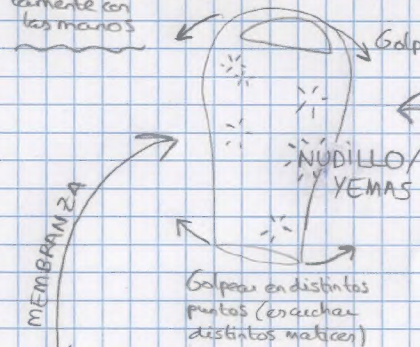 camente con
las manos
Golp
NUDILLO/
YEMAS
MEMBRANZA
Golpear en distintos
puntos (escuchar
distintos matices)